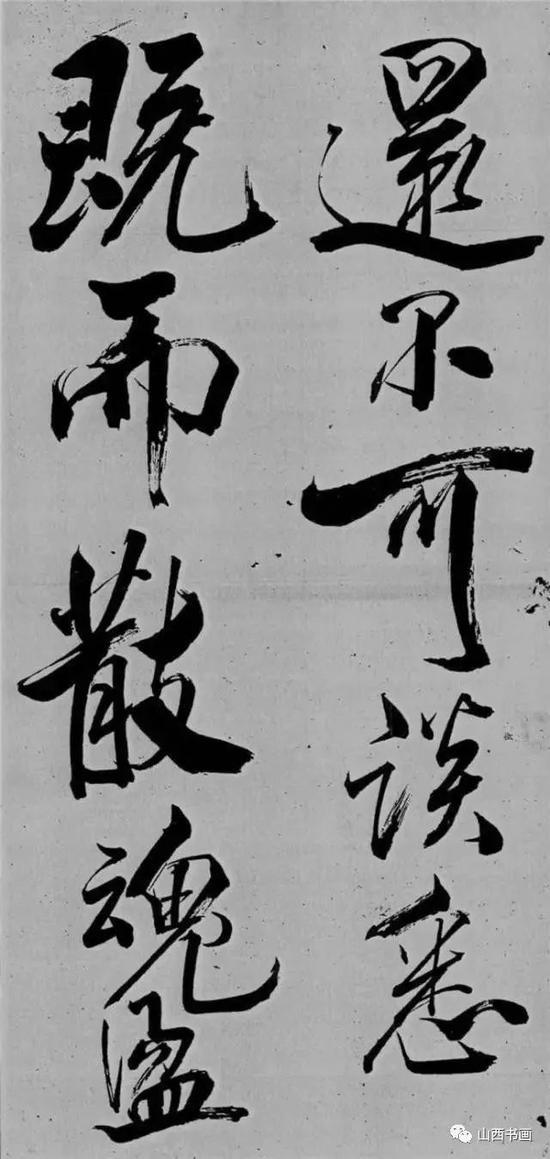 還不可談悉
既而散魂盪
山西书画